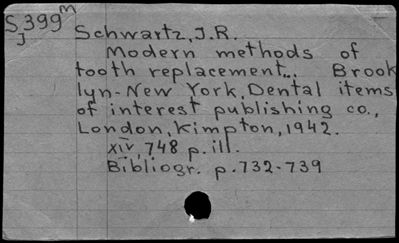 S399 m
J
Schwartz, J.R.
Modern methods of
tooth replacement... Brook
lyn-New York, Dental items
of interest publishing co.,
London, Kimpton, 1942.
XIV, 748 p. ill.
Bibliogr. p. 732-739